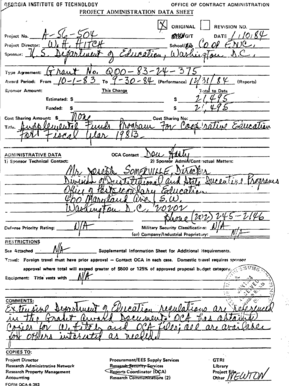 GEORGIA INSTITUTE OF TECHNOLOGY OFFICE OF CONTRACT ADMINISTRATION
PROJECT ADMINISTRATION DATA SHEET
X ORIGINAL REVISION NO.
Project No. A-56-504 DATE 1/10/84
Project Director: W.H. HITCH School/Lab Co op ENR.
Sponsor: U.S. Department of Education, Washington, D.C.
Type Agreement: Grant No. G00-83-24-375
Award Period: From 10-1-83 To 9-30-84 (Performance) 12/31/84 (Reports)
Sponsor Amount: This Change Total to Date
Estimated: $ $ 21,495
Funded: $ $ 21,495
Cost Sharing Amount: $ None Cost Sharing No:
Title: Supplemental Funds Program For Cooperative Education
For Fiscal Year 1983
ADMINISTRATIVE DATA OCA Contact Don Hasty
1) Sponsor Technical Contact: 2) Sponsor Admin/Contractual Matters:
Mr. Joseph Somerville, Director
Division of Institutional and State Incentive Programs
Office of Postsecondary Education
400 Maryland Ave. S.W.
Washington, D.C. 20202
Phone (202) 245-2146
Defense Priority Rating: N/A Military Security Classification: N/A
(or) Company/Industrial Proprietary: N/A
RESTRICTIONS
See Attached N/A Supplemental Information Sheet for Additional Requirements.
Travel: Foreign travel must have prior approval – Contact OCA in each case. Domestic travel requires sponsor
approval where total will exceed greater of $500 or 125% of approved proposal budget category.
Equipment: Title vests with N/A
COMMENTS:
Extensive Department of Education regulations are referenced
in the Grant Award Document. OCA has obtained
copies for W. Hitch and OCA files; are available
for others interested as needed.
COPIES TO:
Project Director Procurement/EES Supply Services GTRI
Research Administrative Network Research Security Services Library
Research Property Management Reports Coordinator (OCA) Project File
Accounting Research Communications (2) Other NEWTON
FORM OCA 4:383